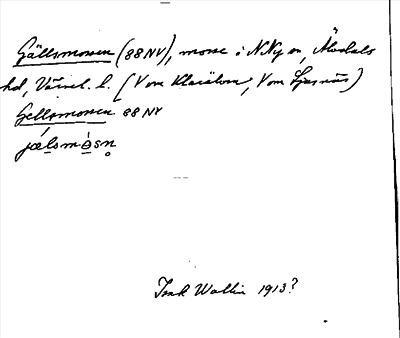 Gällsmossen (88 NV), mosse i N. Ny sn, Älvdals
hd, Värml. l. (V om Klarälven, V om Ljusnäs)
Gellsmossen 88 NV
Isak Wallin 1913?